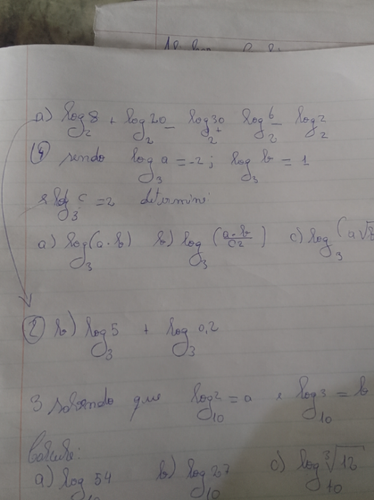 a) log₂8 + log₂20 - log₂30 + log₂6 - log₂2
④ sendo log₃a = -2; log₃b = 1
log₃c = 2 determine:
a) log₃(a·b) b) log₃(a·b/c2) c) log₃(a√
② b) log₃5 + log₃0,2
3 sabendo que log₁₀2 = a e log₁₀3 = b
Calcule:
a) log₁₀54 b) log₁₀27 c) log₁₀∛12